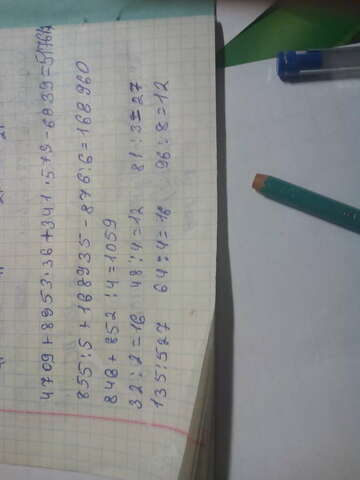 4709+8953·36+341·579-6839=517617
855:5+168935-876:6=168960
846+852:4=1059
32:2=16 48:4=12 81:3=27
135:527 64:4=16 96:8=12